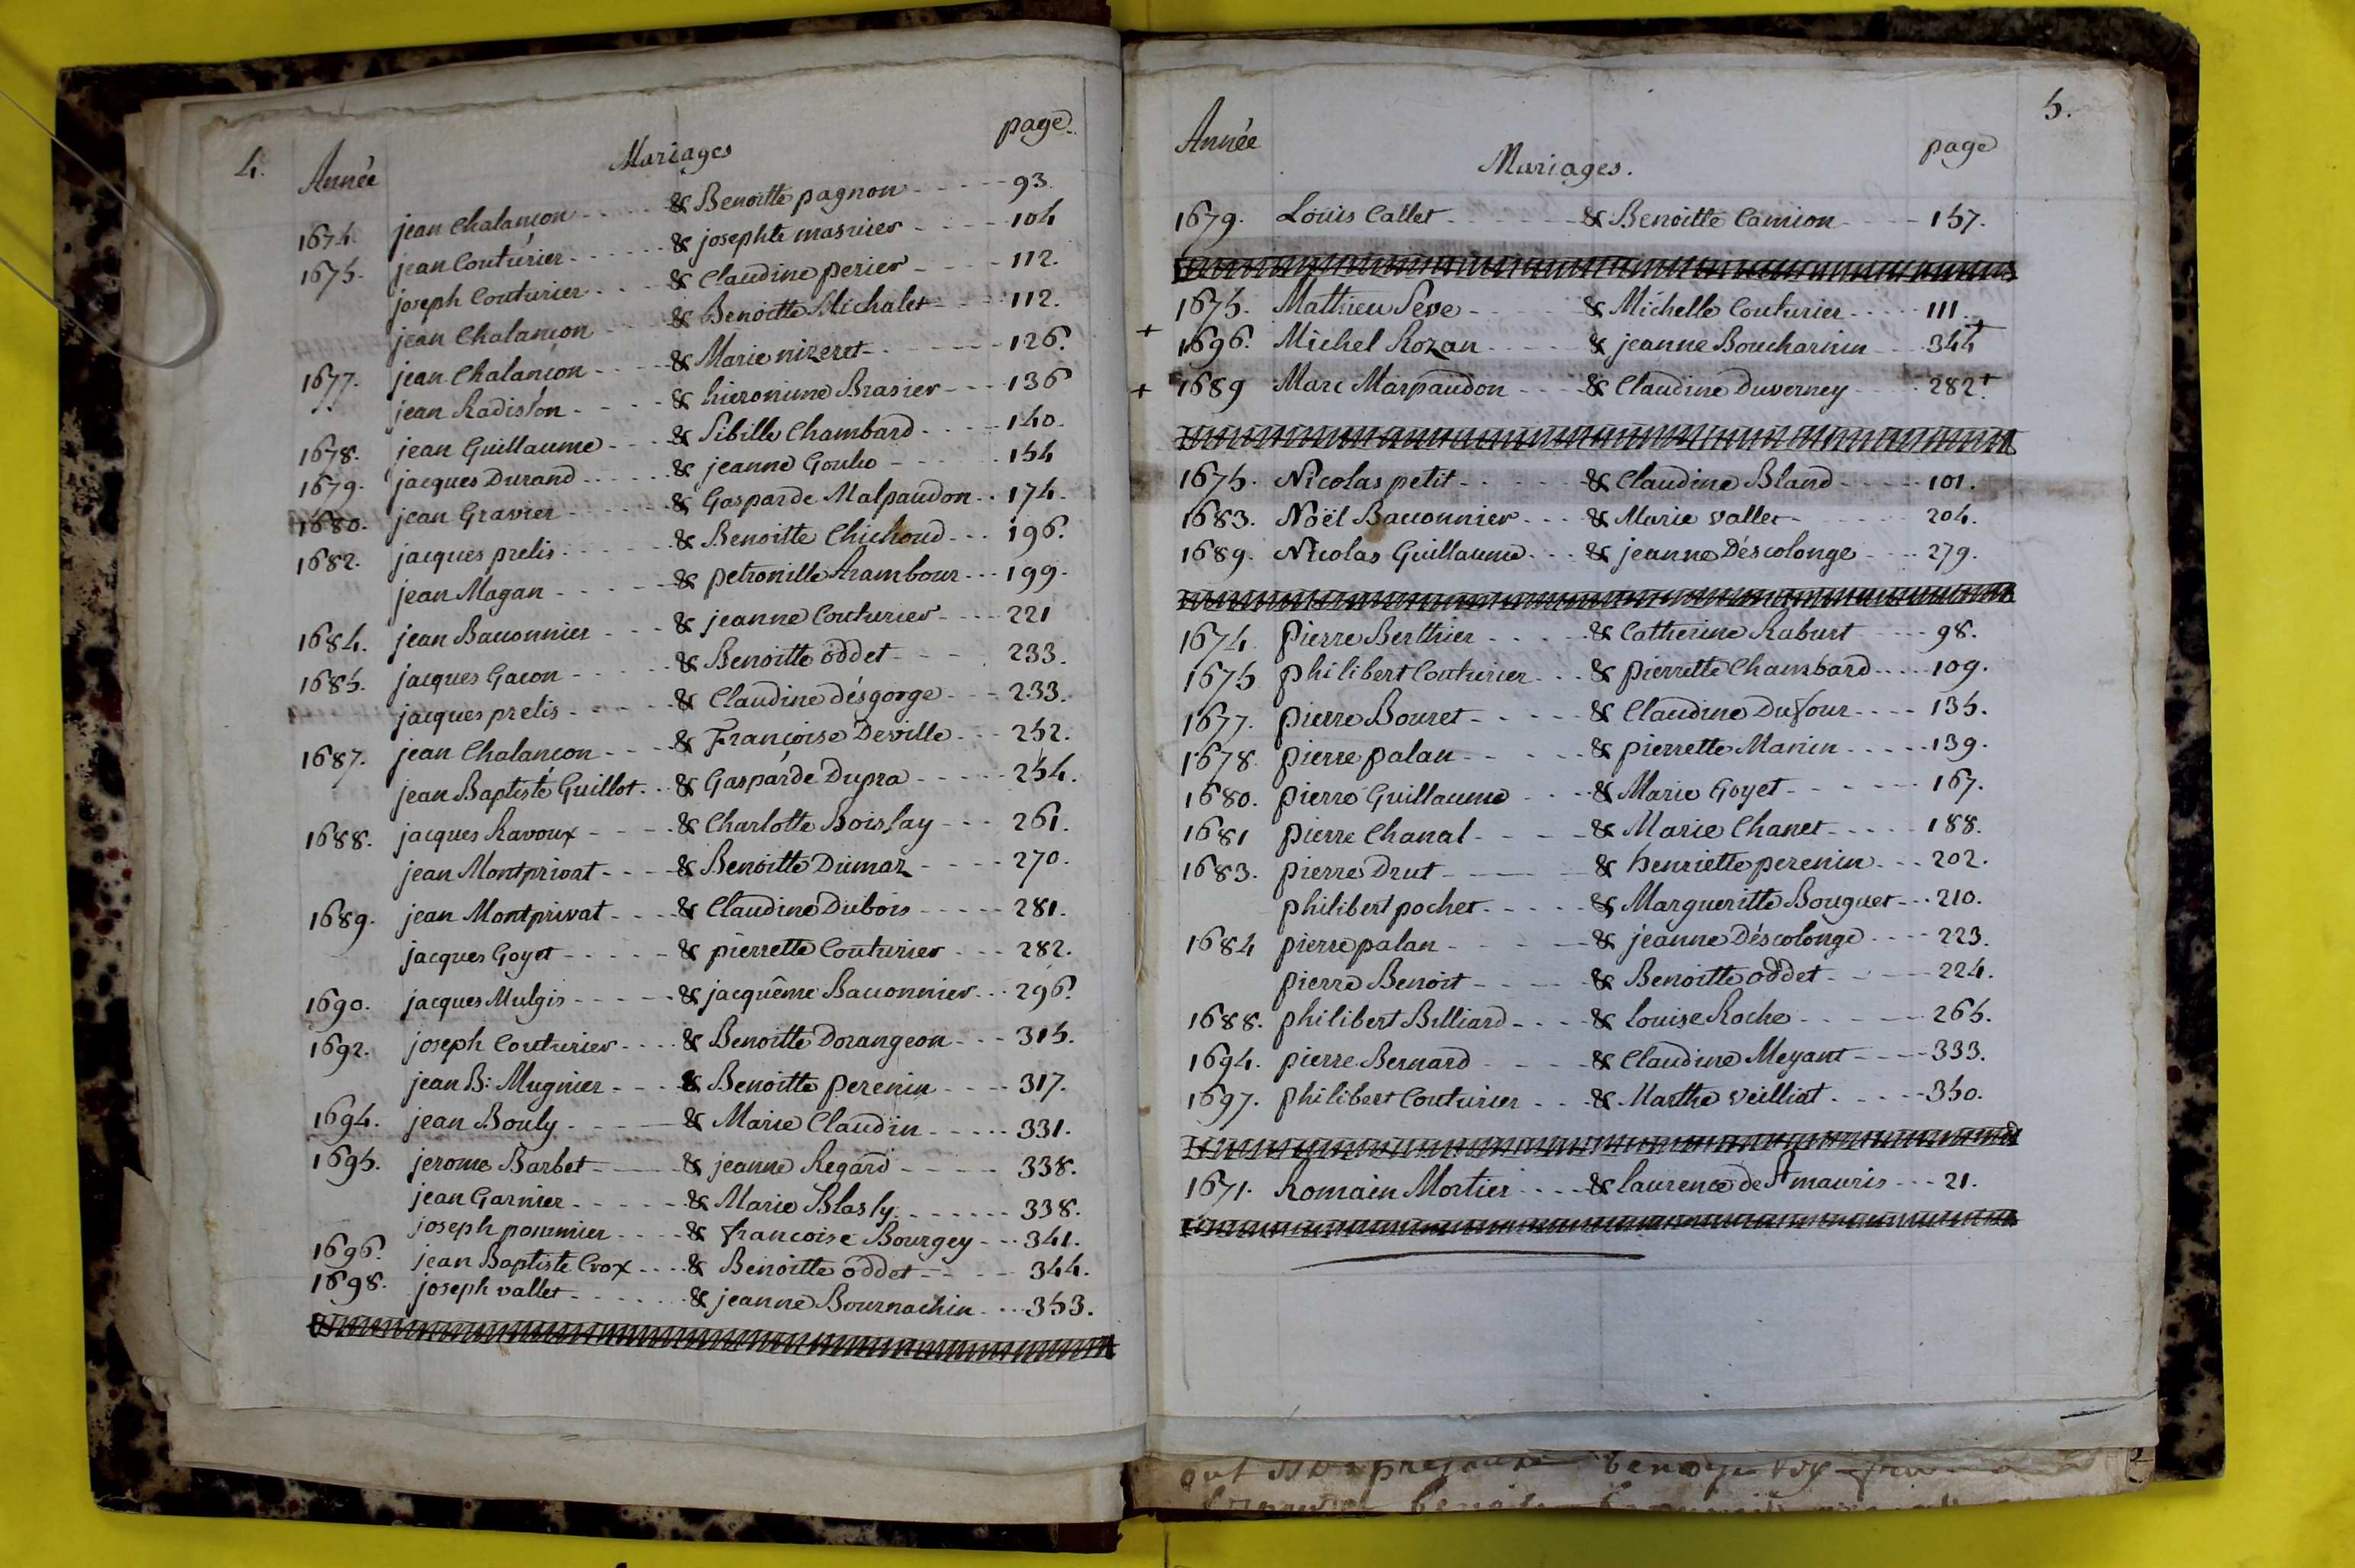 4.
Année Mariages page.
1674. jean Chalançon - - - - & Benoitte pagnon - - - - - 93.
1675. jean Couturier - - - - - & josephte masuier - - - - 104
joseph Couturier - - - & Claudine perier - - - - 112.
jean Chalançon - - & Benoitte Michalet - - - 112.
1677. jean Chalançon - - - - & Marie nizeret - - - - - 126.
jean Radisson - - - - & hieronime Brasier - - - 136
1678. jean Guillaume - - - & Sibille Chambard - - - - 140.
1679. jacques Durand - - - - - & jeanne Goulio - - - - 154
1680. jean Gravier - - - - - & Gasparde Malpaudon - - 174.
1682. jacques prelis - - - - - & Benoitte Chichoud - - - 196.
jean Magan - - - - - & petronille Arambour - - - 199.
1684. jean Bauonnier - - - & jeanne Couturier - - - - 221
1685. jacques Gacon - - - - & Benoitte oddet - - - 233.
jacques prelis - - - - - & Claudine désgorge - - - 233.
1687. jean Chalançon - - - - & Françoise Deville - - - 252.
jean Baptiste Guillot - - & Gasparde Dupra - - - - - 254.
1688. jacques Ravoux - - - - & Charlotte Boissay - - - 261.
jean Montprivat - - - - & Benoitte Dumaz - - - - 270.
1689. jean Montprivat - - - - & Claudine Dubois - - - - - 281.
jacques Goyet - - - - - & pierrette Couturier - - - 282.
1690. jacques Mulgis - - - - - & jacquême Bauonnier - - - 296.
1692. joseph Couturier - - - - & Benoitte Dorangeon - - - 315.
jean B: Mugnier - - - & Benoitte perenin - - - - 317.
1694. jean Bouly - - - - & Marie Claudin - - - - - 331.
1695. jerome Barbet - - - & jeanne Regard - - - - - 338.
jean Garnier - - - - - - & Marie Blasly - - - - - - - 338.
joseph pommier - - - - & francoise Bourgey - - - 341.
1696. jean Baptiste Crox - - - - & Benoitte oddet - - - - 344.
1698. joseph vallet - - - - - - & jeanne Bournachin - - - 353.
5.
Année Mariages. page
1679. Louis Callet - - - - - - & Benoitte Camion - - - - 157.
1675. Mathieu Seve - - - - & Michelle Couturier - - - - - 111.
+ 1696. Michel Rozan - - - - & jeanne Boucharnin - - - 344 +
+ 1689 Marc Marpaudon - - - - & Claudine Duverney - - - - 282. +
1675. Nicolas petit - - - - - & Claudine Bland - - - - - 101.
1683. Noël Bauonnier - - - & Marie vallet - - - - - 204.
1689. Nicolas Guillaume - - - & jeanne Déscolonge - - - 279.
1674. pierre Berthier - - - - & Catherine Raburt - - - - 98.
1675 philibert Couturier - - - & pierrette Chambard - - - - 109.
1677. pierre Bouret - - - - - & Claudine Dufour - - - - 135.
1678. pierre palan - - - - - & pierrette Manin - - - - - 139.
1680. pierre Guillaume - - - - & Marie Goyet - - - - - - 167.
1681 pierre Chanal - - - - - & Marie Chanet - - - - - 188.
1683. pierre Drut - - - - & henriette perenin - - - 202.
philibert pochet - - - - - & Margueritte Bouguet - - - 210.
1684 pierre palan - - - - - & jeanne Déscolonge - - - - 223.
pierre Benoit - - - - - & Benoitte oddet - - - - 224.
1688. philibert Billiard - - - - & Louise Roche - - - - - 265.
1694. pierre Bernard - - - - & Claudine Meyant - - - - 333.
1697. philibert Couturier - - - & Marthe veilliat - - - - - 350.
1671. Romain Mortier - - - - & laurence de St mauris - - - 21.